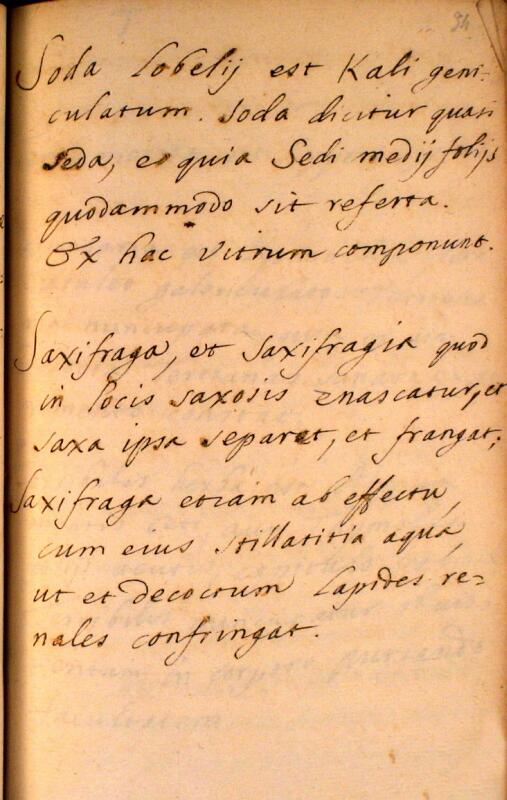 94
Soda Lobelij est Kali geni-
culatum. Soda dicitur quasi
seda, eo quia Sedi medij folijs
quodammodo sit referta.
Ex hac vitrum componunt.
Saxifraga, et saxifragia quod
in locis saxosis enascatur, et
saxa ipsa separet, et frangat;
Saxifraga etiam ab effectu,
cum eius stillatitia aquâ
ut et decoctum Lapides re=
nales confringat.